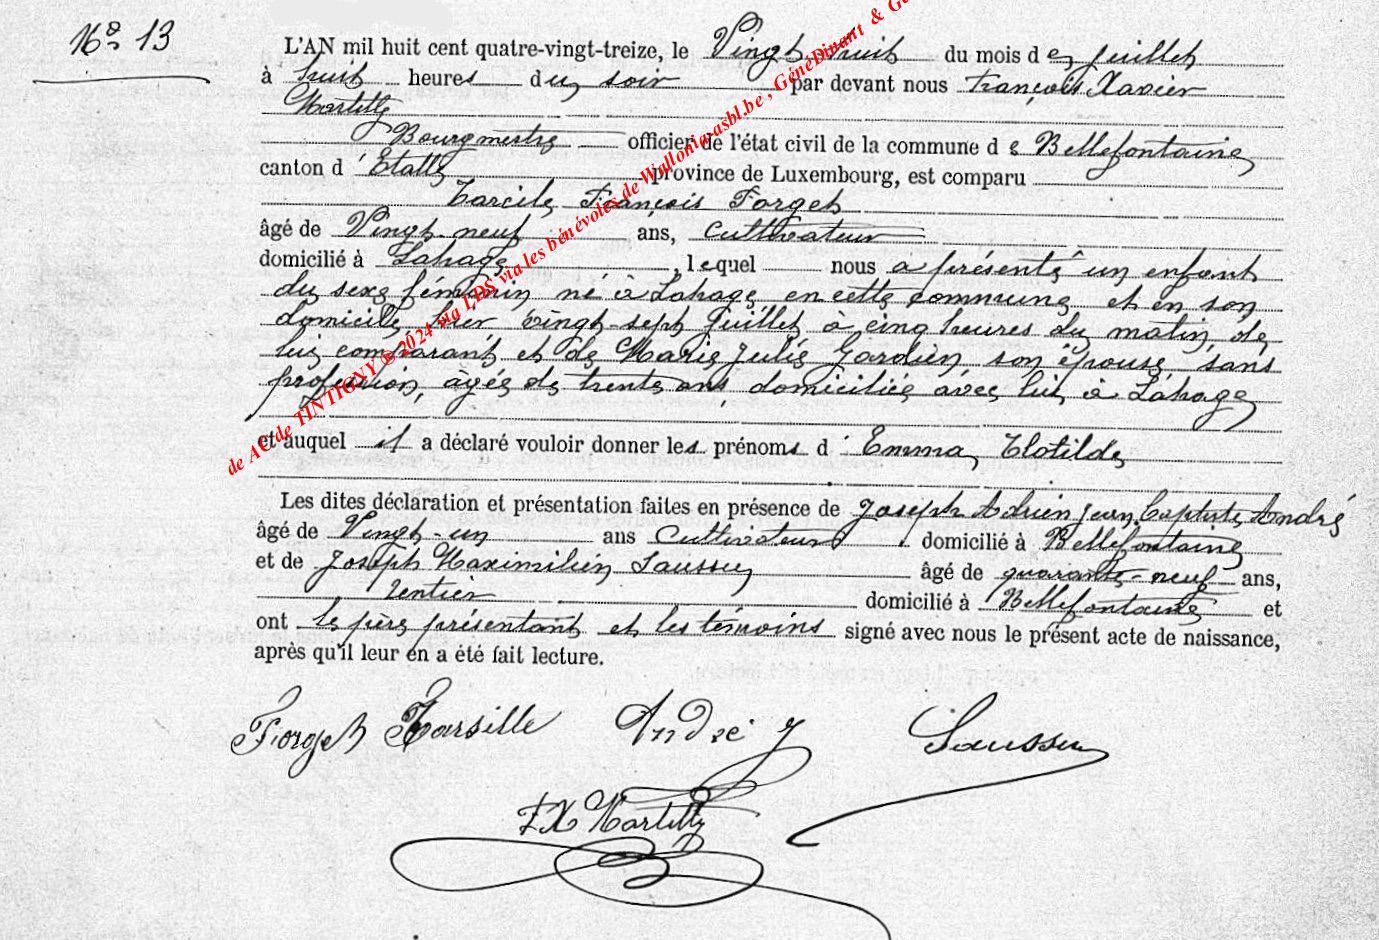 Nº 13
L'AN mil huit cent quatre-vingt-treize, le Vingt huit du mois de juillet
à huit heures du soir par devant nous François Xavier
Martilly
Bourgmestre officier de l'état civil de la commune de Bellefontaine
canton d'Etalle province de Luxembourg, est comparu
Tarcile François Forget
âgé de Vingt-neuf ans, cultivateur
domicilié à Lahage, lequel nous a présenté un enfant
du sexe féminin, né à Lahage, en cette commune et en son
domicile, hier vingt-sept juillet à cinq heures du matin, de
lui comparant et de Marie Julie Gardien son épouse, sans
profession, âgée de trente ans, domiciliée avec lui, à Lahage
et auquel il a déclaré vouloir donner les prénoms d'Emma, Clotilde
Les dites déclaration et présentation faites en présence de Joseph Adrien Jean Baptiste André
âgé de Vingt-un ans Cultivateur domicilié à Bellefontaine
et de Joseph Maximilien Saussu âgé de quarante-neuf ans,
Rentier domicilié à Bellefontaine et
ont le père présentant et les témoins signé avec nous le présent acte de naissance,
après qu'il leur en a été fait lecture.
Forget Tarsille André J Saussu
FX Martilly
de AC de TINTIGNY @ 2024 via LDS via les bénévoles de Wallonia-asbl.be, GénéDinant & G